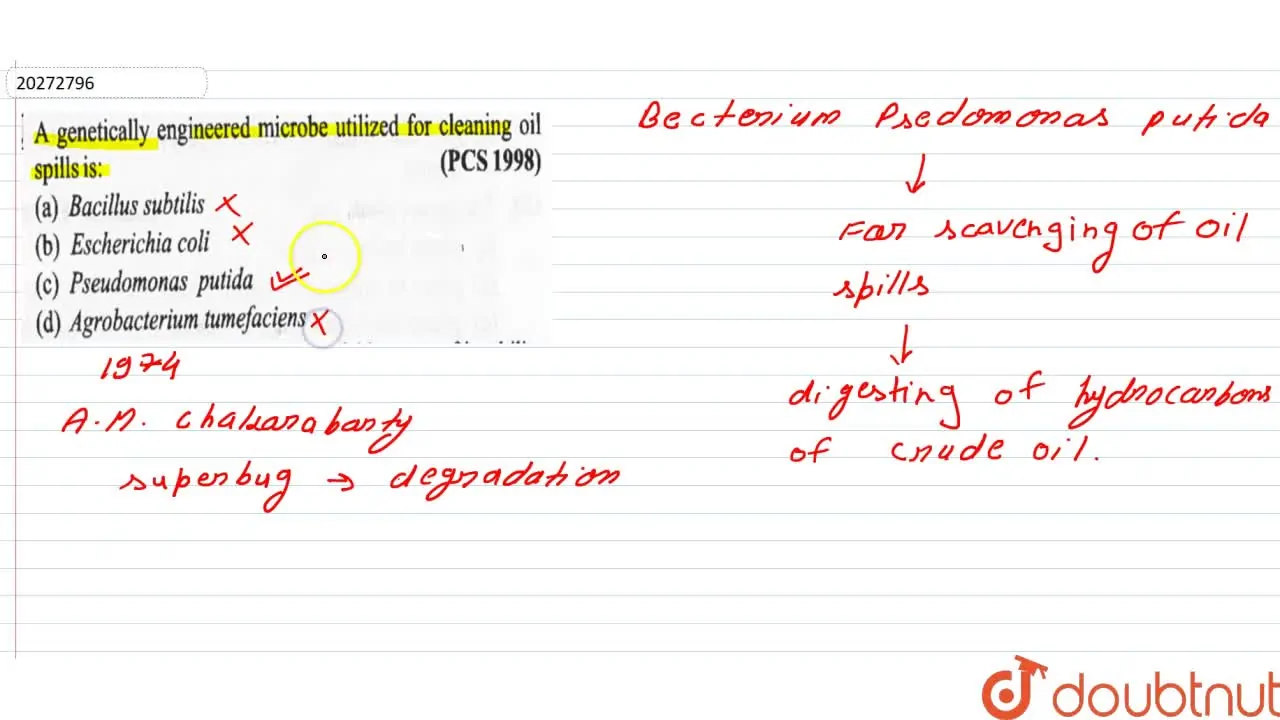 20272796
A genetically engineered microbe utilized for cleaning oil
spills is: (PCS 1998)
(a) Bacillus subtilis
(b) Escherichia coli
(c) Pseudomonas putida
(d) Agrobacterium tumefaciens
1974
A.M. Chakarabarty
superbug → degradation
Becterium Psedomonas putida
↓
For scavenging of oil
spills
↓
digesting of hydrocarbons
of crude oil.
doubtnut